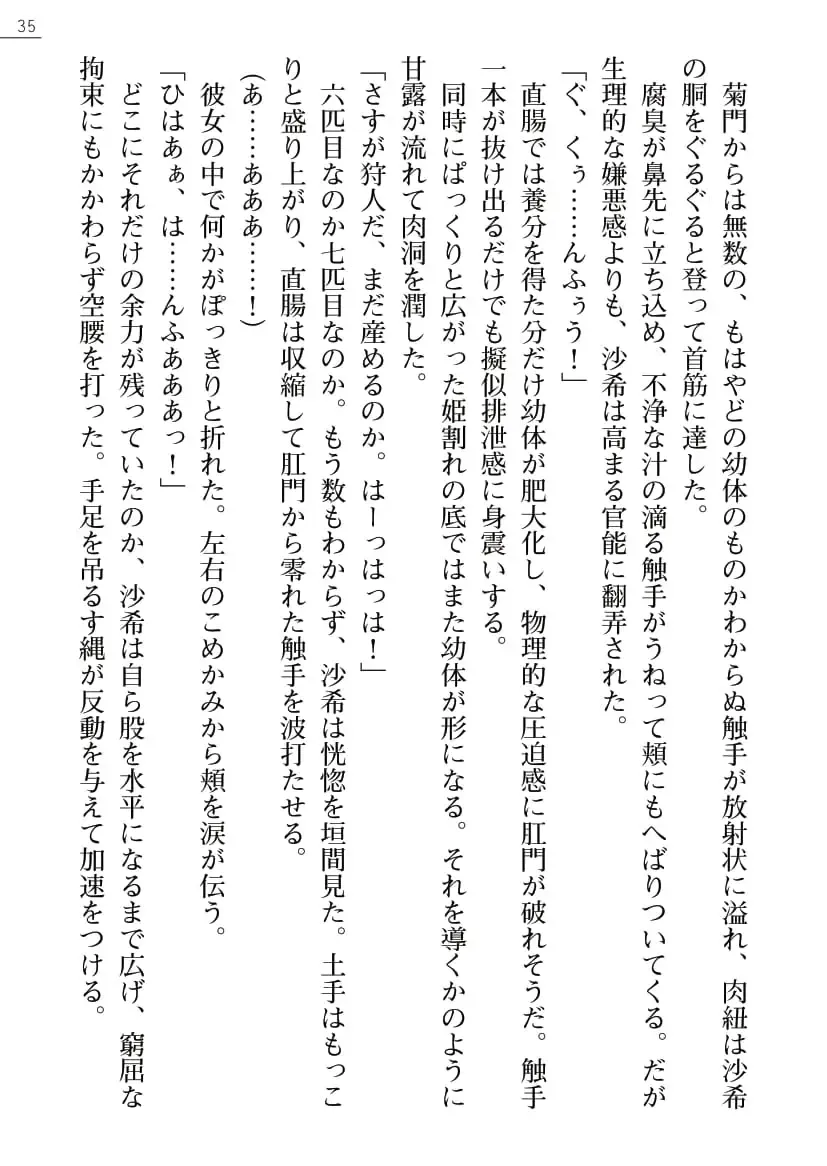 35
菊門からは無数の、もはやどの幼体のものかわからぬ触手が放射状に溢れ、肉紐は沙希
の胴をぐるぐると登って首筋に達した。
腐臭が鼻先に立ち込め、不浄な汁の滴る触手がうねって頬にもへばりついてくる。だが
生理的な嫌悪感よりも、沙希は高まる官能に翻弄された。
「ぐ、くぅ……んふぅう！」
直腸では養分を得た分だけ幼体が肥大化し、物理的な圧迫感に肛門が破れそうだ。触手
一本が抜け出るだけでも擬似排泄感に身震いする。
同時にぱっくりと広がった姫割れの底ではまた幼体が形になる。それを導くかのように
甘露が流れて肉洞を潤した。
「さすが狩人だ、まだ産めるのか。はーっはっは！」
六匹目なのか七匹目なのか。もう数もわからず、沙希は恍惚を垣間見た。土手はもっこ
りと盛り上がり、直腸は収縮して肛門から零れた触手を波打たせる。
(あ……あああ……！)
彼女の中で何かがぽっきりと折れた。左右のこめかみから頬を涙が伝う。
「ひはあぁ、は……んふあああっ！」
どこにそれだけの余力が残っていたのか、沙希は自ら股を水平になるまで広げ、窮屈な
拘束にもかかわらず空腰を打った。手足を吊るす縄が反動を与えて加速をつける。